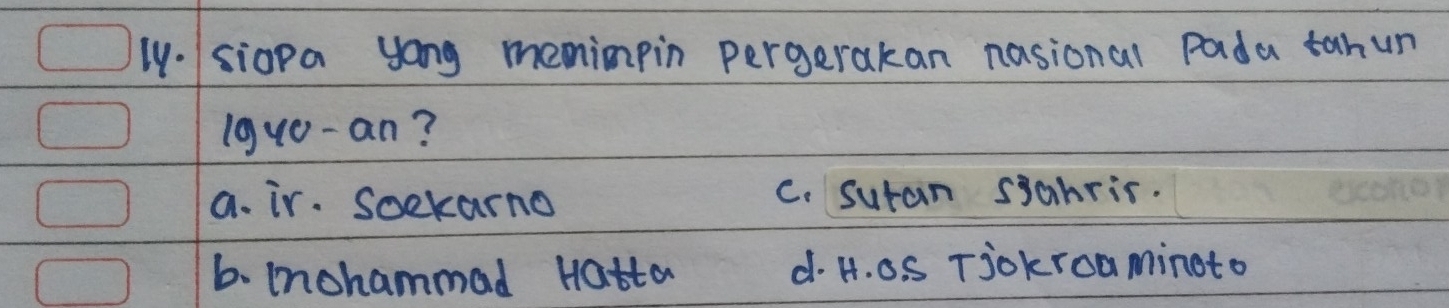 14. siapa yang memimpin pergerakan nasional pada tahun
1940-an?
a. ir. Soekarno c. sutan sjahrir.
b. mohammad Hatta d. H.O.S Tjokroaminoto